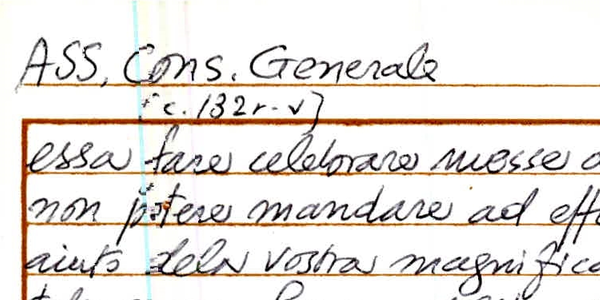 ASS, Cons. Generale
[c. 132r-v]
essa fare celebrare messe
non potere mandare ad eff
aiuto dela vostra magnifica